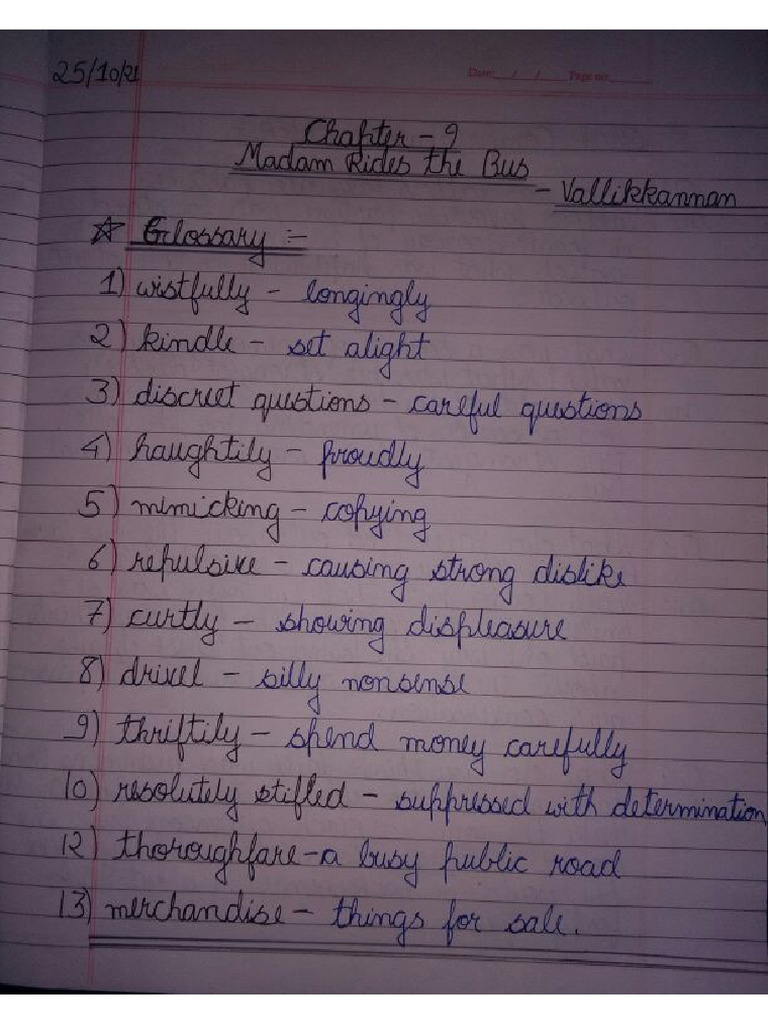 25/10/21
Date: / / Page no:
Chapter - 9
Madam Rides the Bus
- Vallikkannan
☆ Glossary :-
1) wistfully - longingly
2) kindle - set alight
3) discreet questions - careful questions
4) haughtily - proudly
5) mimicking - copying
6) repulsive - causing strong dislike
7) curtly - showing displeasure
8) drivel - silly nonsense
9) thriftily - spend money carefully
10) resolutely stifled - suppressed with determination
12) thoroughfare - a busy public road
13) merchandise - things for sale.